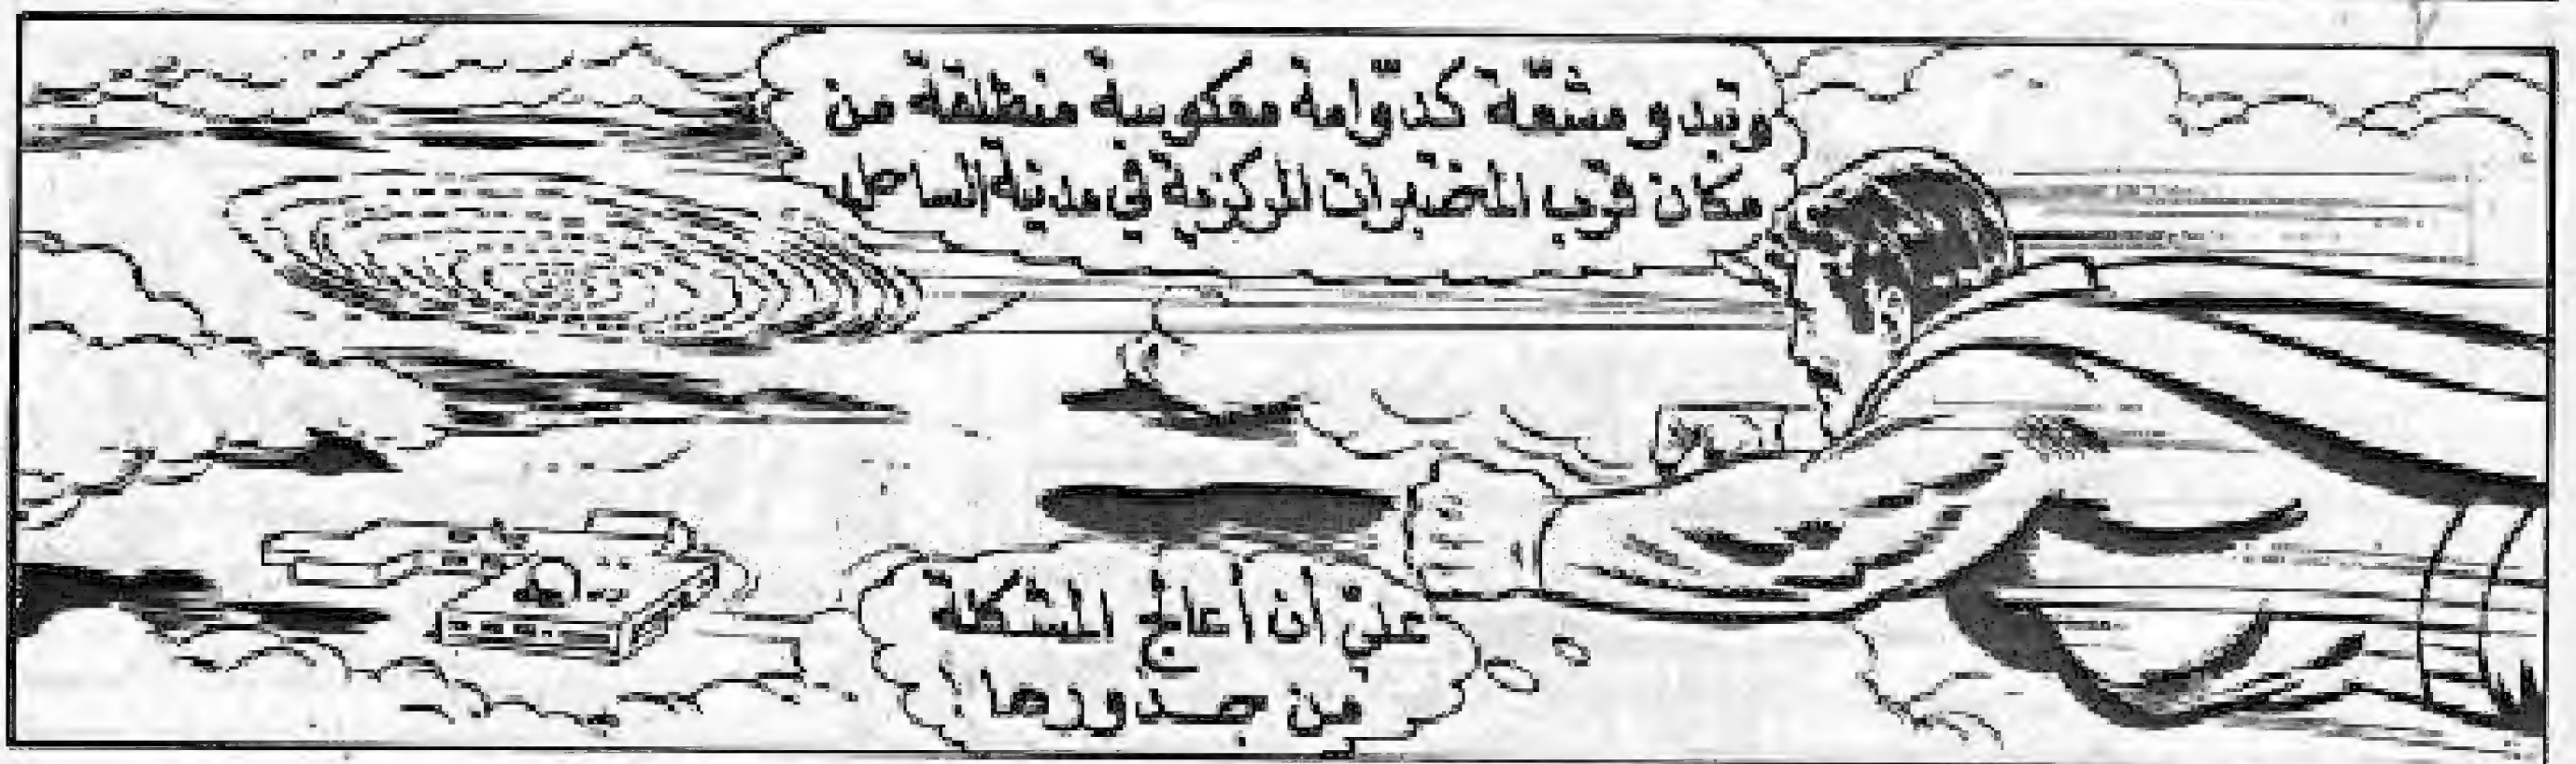 وتبدو مشعّة كدوّامة معكوسة منطلقة من
مكان قرب المختبرات المركزية في مدينة الساحل
عليّ أن أعالج المشكلة
من جذورها!